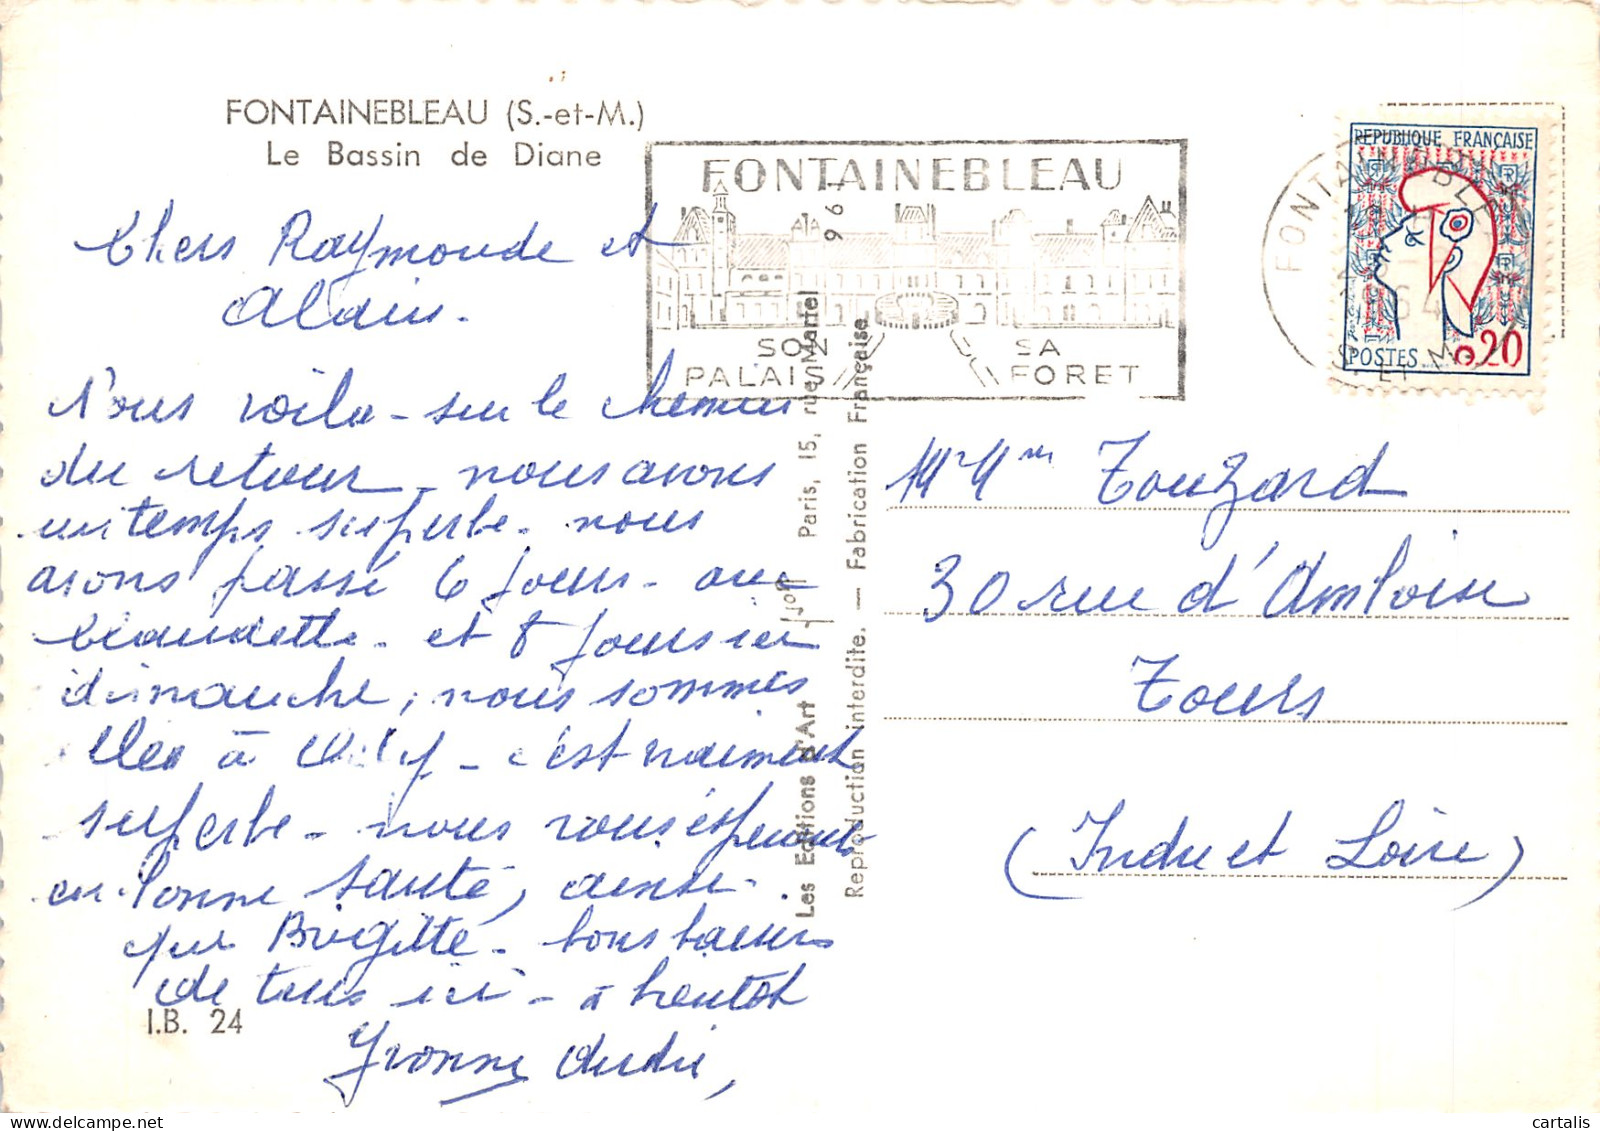 FONTAINEBLEAU (S.-et-M.)
Le Bassin de Diane
Chers Raymonde et
Alain.
Nous voila - sur le chemin
du retour - nous avons
un temps superbe - nous
avons passé 6 jours - aux
et 8 jours ici
dimanche, nous sommes
à - c'est vraiment
superbe - nous vous espérons
en bonne santé, ainsi
que Brigitte - bons baisers
de tous ici - à bientôt
Yvonne André,
I.B. 24
FONTAINEBLEAU
SON PALAIS
SA FORET
1961
Les Editions d'Art Yvon Paris, 15, rue Martel
Reproduction interdite. — Fabrication Française
FONTAINEBLEAU
64
S. ET M.
REPUBLIQUE FRANÇAISE
POSTES 0,20
Mr Mme Touzard
30 rue d'Amboise
Tours
(Indre et Loire)
cartalis